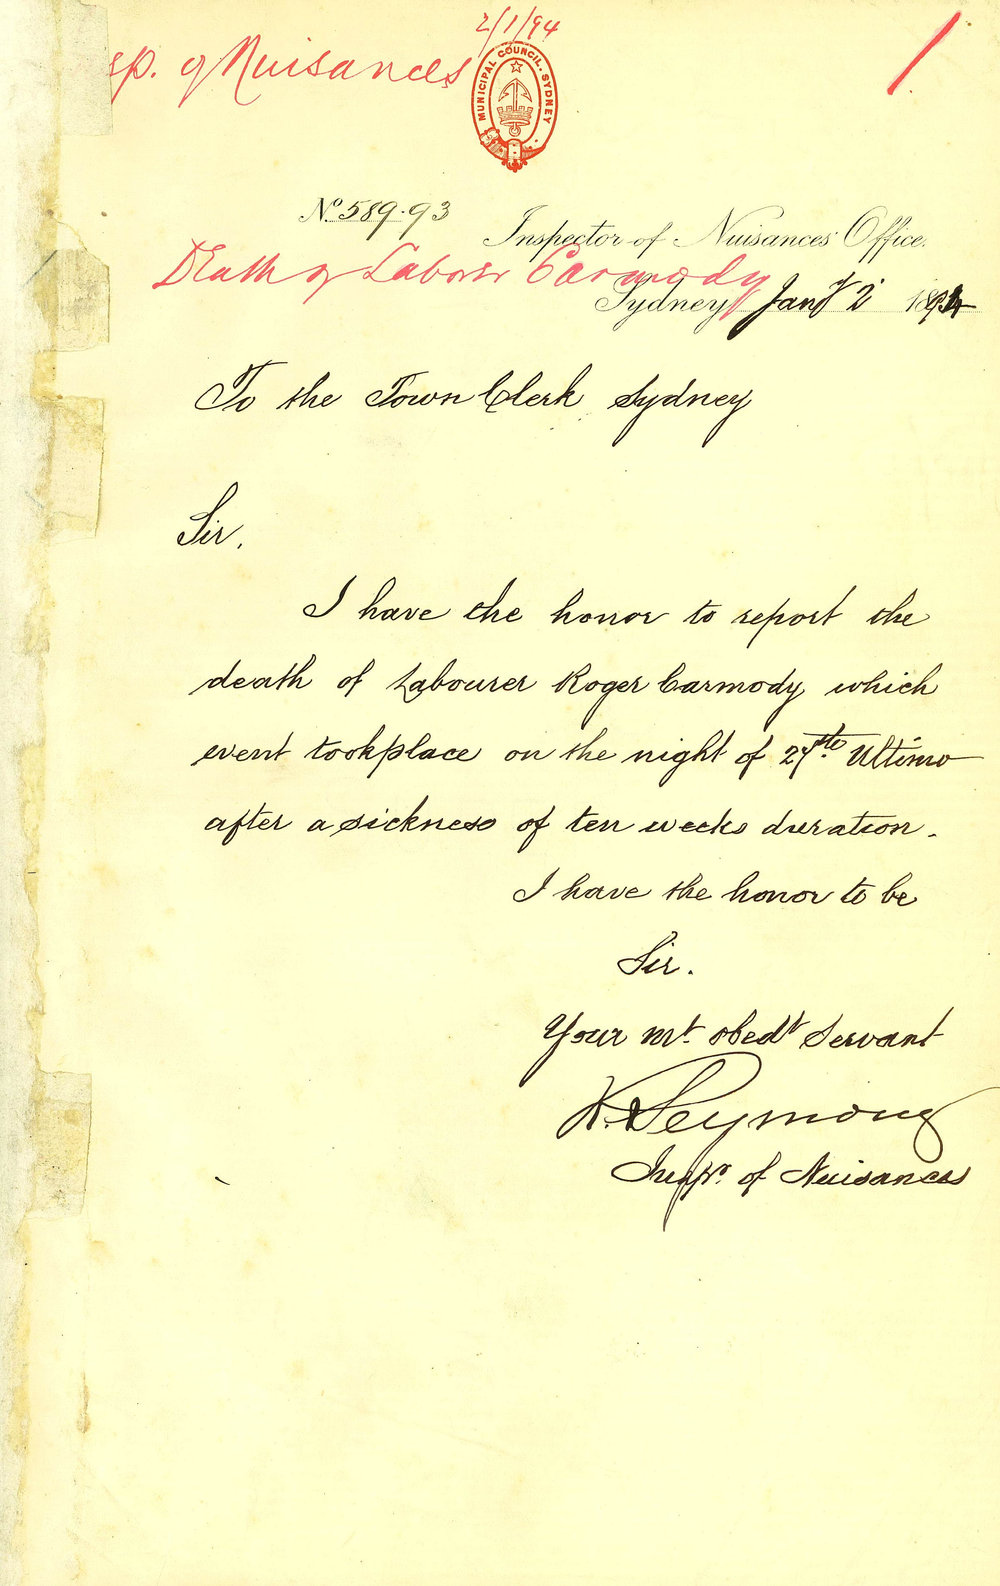 2/1/94
sp. of Nuisances
MUNICIPAL COUNCIL. SYDNEY
No. 589.93
Inspector of Nuisances' Office,
Death of Laborer Carmody
Sydney, Jany 2 1894
To the Town Clerk Sydney
Sir,
I have the honor to report the
death of Labourer Roger Carmody which
event took place on the night of 27th Ultimo
after a sickness of ten weeks duration.
I have the honor to be
Sir.
Your mt. obedt Servant
R. Seymour
Inspr. of Nuisances